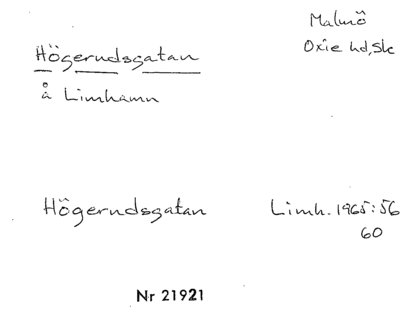 Malmö
Oxie hd, Sk
Högerudsgatan
å Limhamn
Högerudsgatan Limh. 1965:56
60
Nr 21921